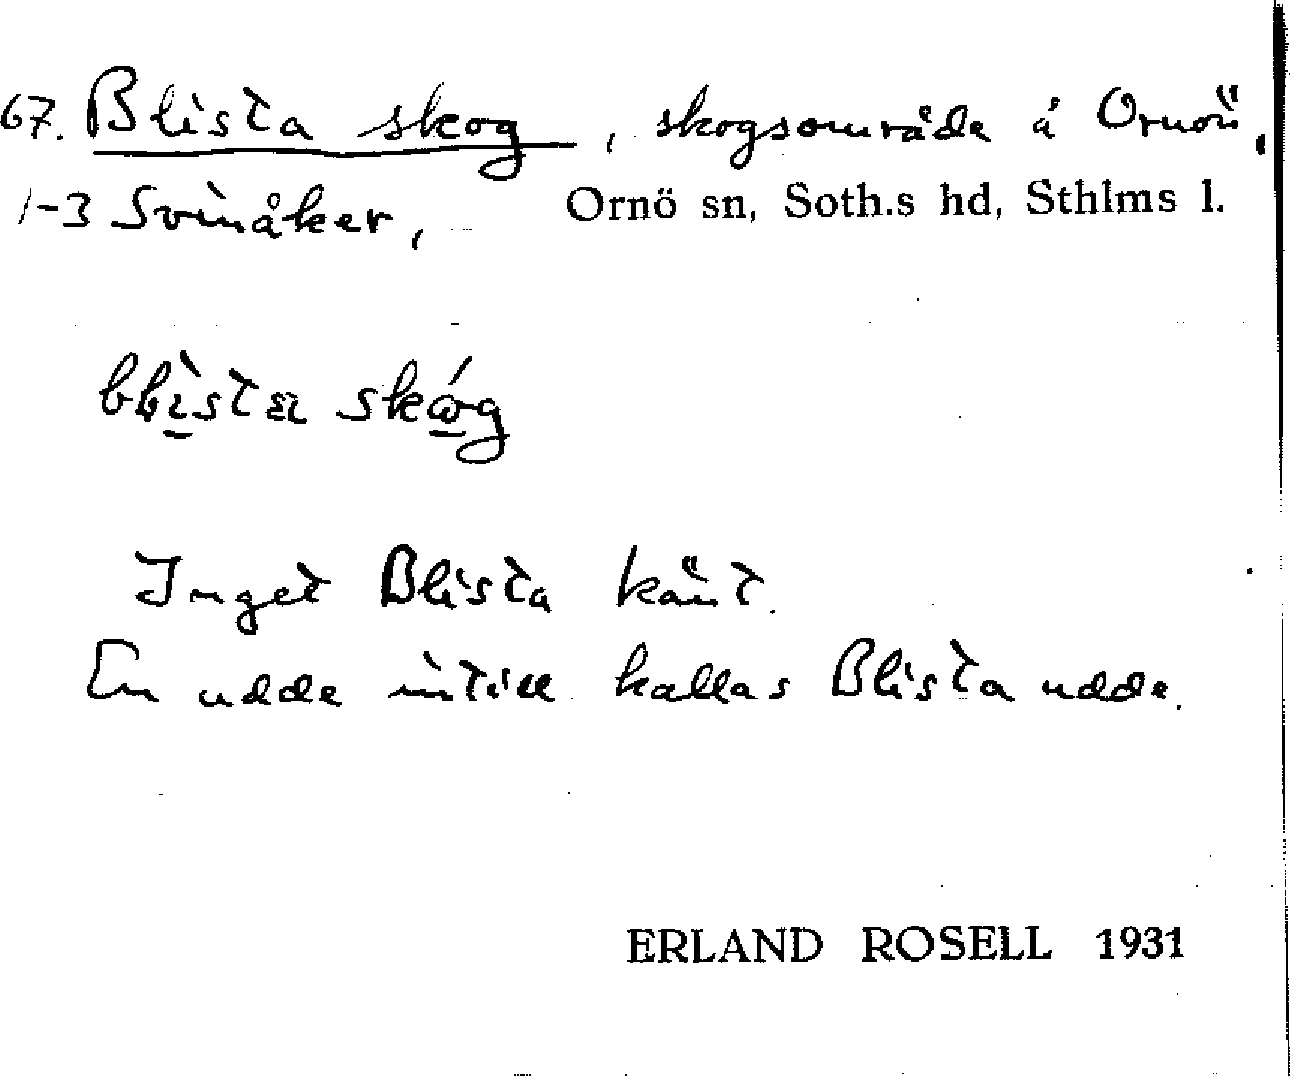 67. Blista skog, skogsområde å Ornön,
1-3 Svinåker, Ornö sn, Soth.s hd, Sthlms l.
skóg
Inget Blista känt.
En udde intill kallas Blista udde.
ERLAND ROSELL 1931